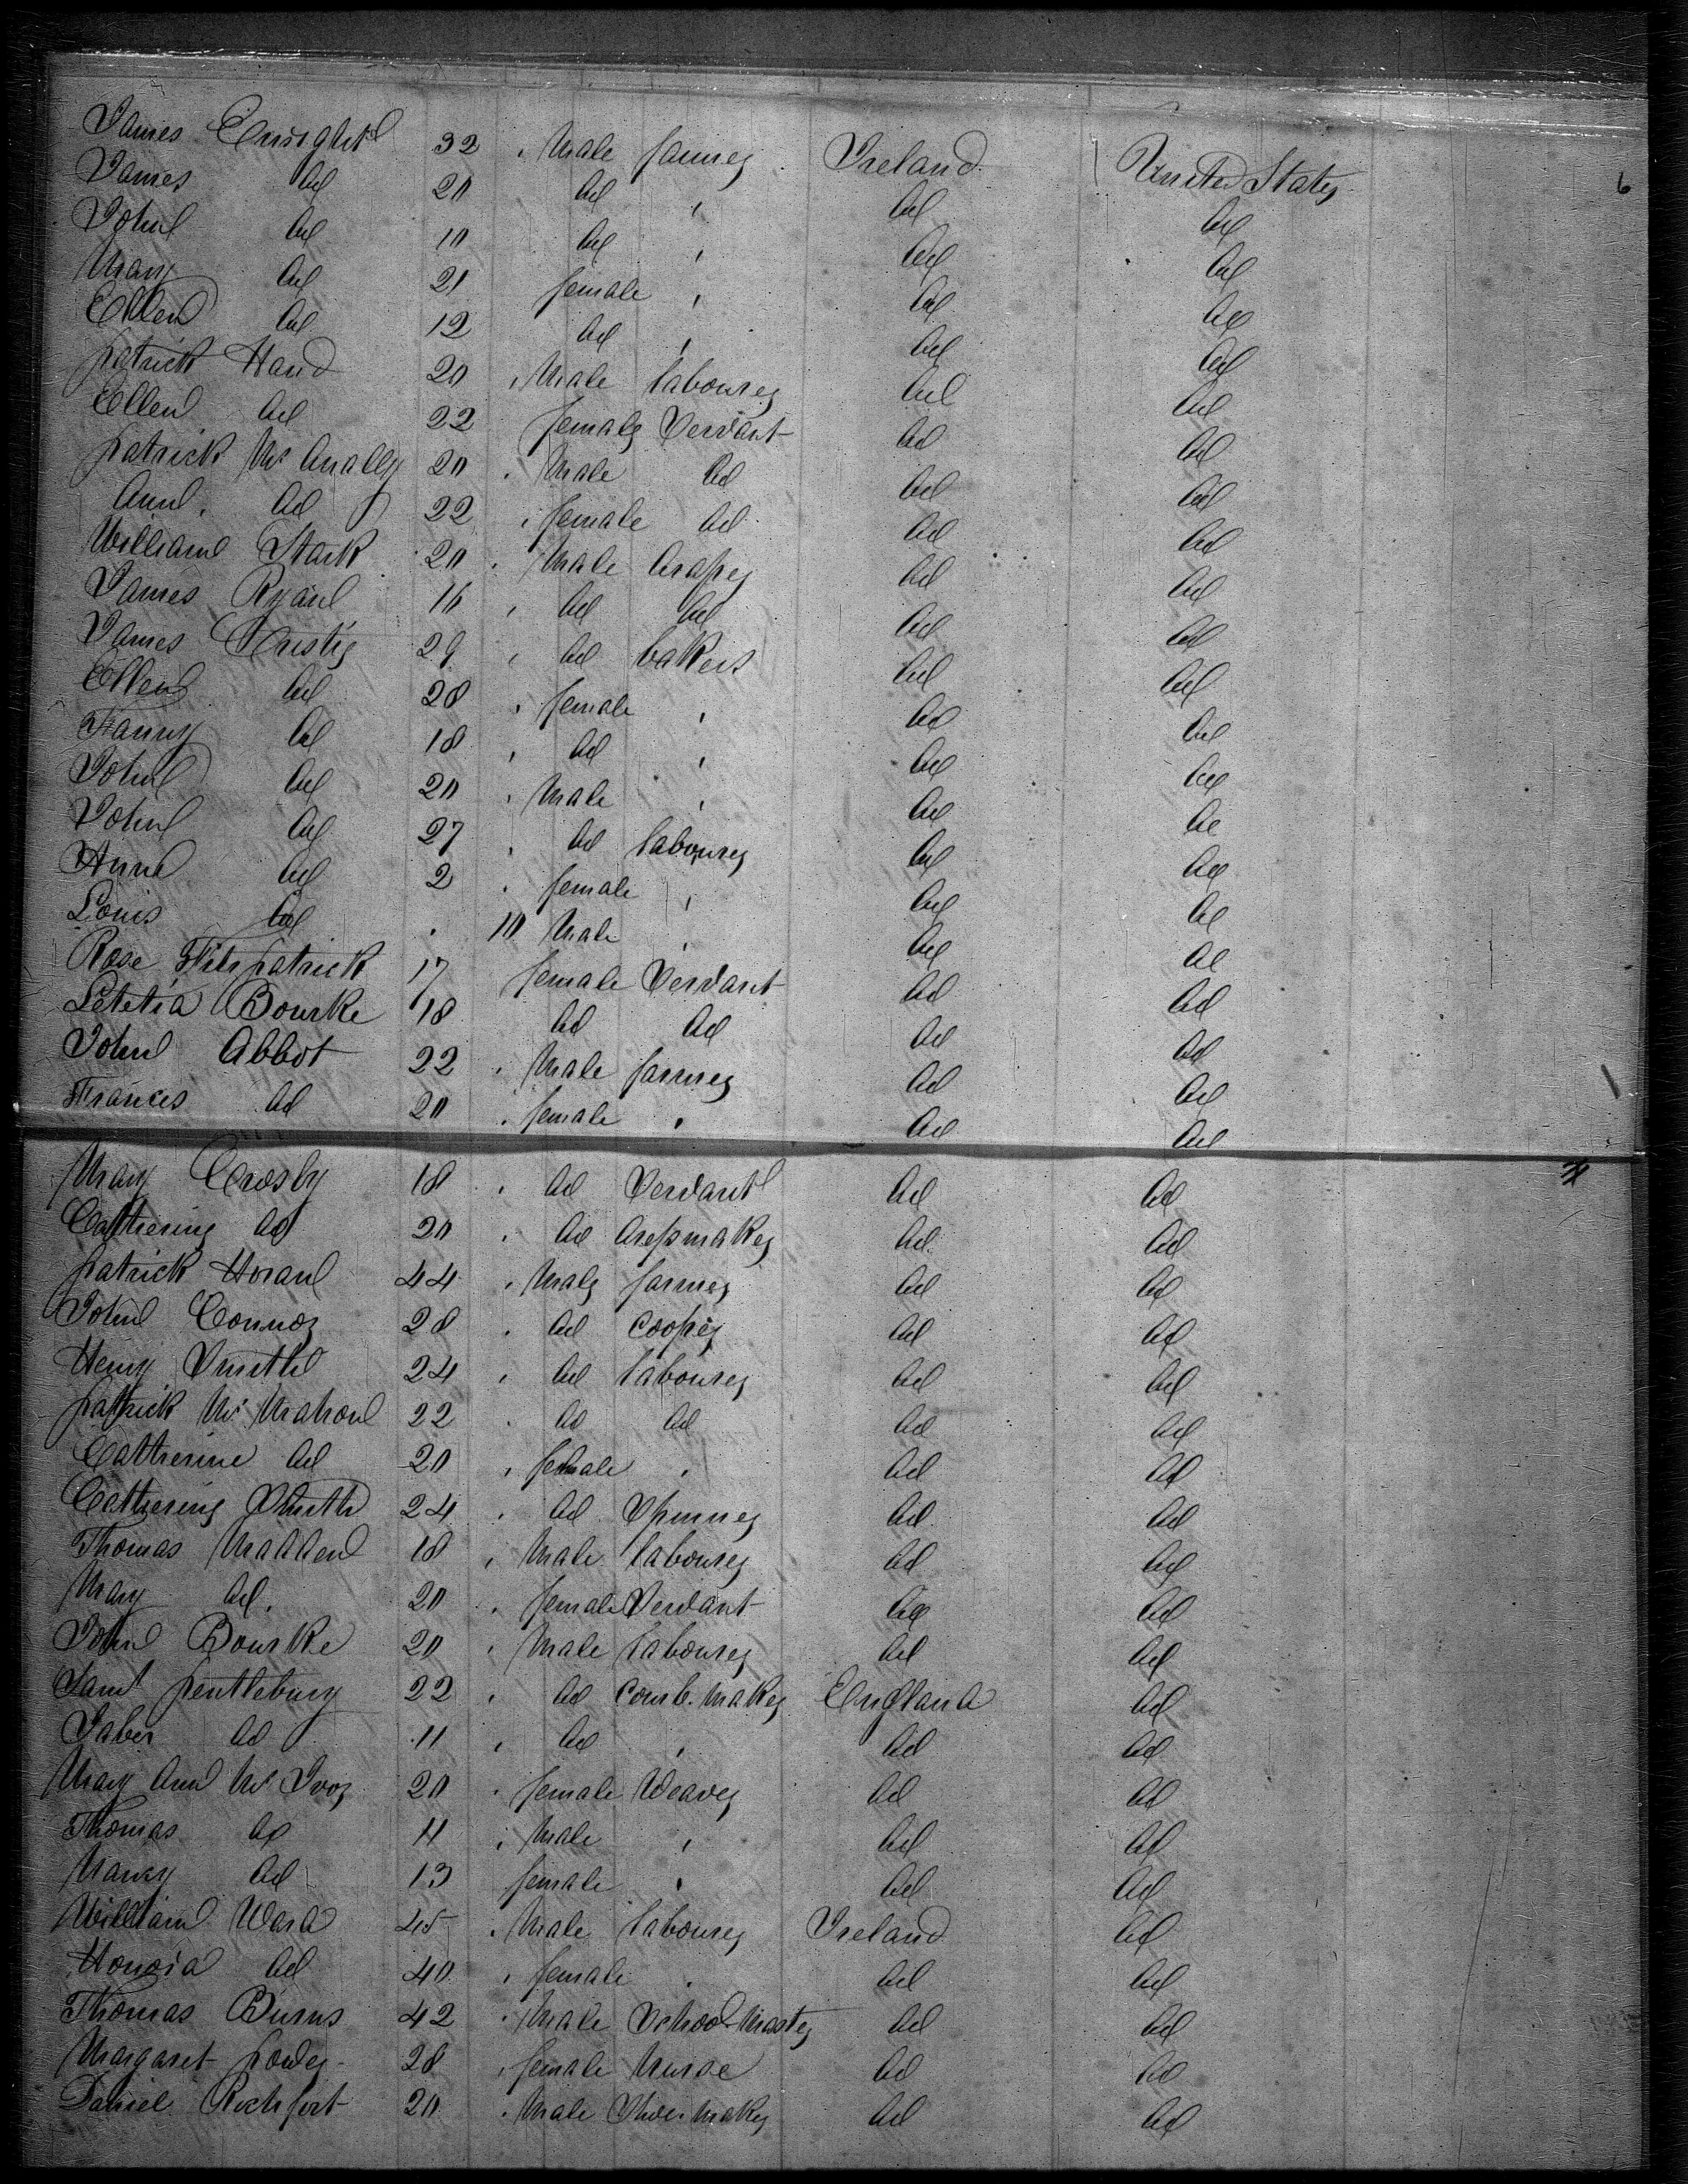 James Enright 32 , Male farmer Ireland United States 6
James do 20 do , do do
John do 10 do , do do
Mary do 21 female , do do
Ellen do 12 do , do do
patrick Hand 20 , Male labourer do do
Ellen do 22 female Servant do do
patrick Mc Anally 20 , Male do do do
Ann do 22 , female do do do
William Stark 20 , Male draper do do
James Ryan 16 , do do do do
James 29 , do bakers do do
Ellen do 28 , female , do do
Fanny do 18 , do , do do
John do 20 , Male , do do
John do 27 , do labourer do do
Anne do 2 , female , do do
Louis do . 10 Male , do do
Rose Fitzpatrick 17 female Servant do do
Letetia Bourke 18 do do do do
John Abbot 22 , Male farmer do do
Frances do 20 , female , do do
Mary Crosby 18 , do Servant do do
Catherine do 20 , do dressmaker do do
patrick Horan 44 , Male farmer do do
John Connor 28 , do cooper do do
Henry Smith 24 , do labourer do do
patrick Mc Mahon 22 , do do do do
Catherine do 20 , female , do do
Catherine Smith 24 , do Spinner do do
Thomas Madden 18 , Male labourer do do
Mary do 20 , female Servant do do
John Bourke 20 , Male labourer do do
Saml pentlebury 22 , do comb. maker England do
Jaber do 11 , do , do do
Mary Ann Mc Ivor 20 , female Weaver do do
Thomas do 11 , Male , do do
Nancy do 13 female , do do
William Ward 45 , Male labourer Ireland do
Honora do 40 , female , do do
Thomas Burns 42 , Male School Master do do
Margaret power 28 , female Nurse do do
Daniel Rochfort 20 , Male Shoe maker do do